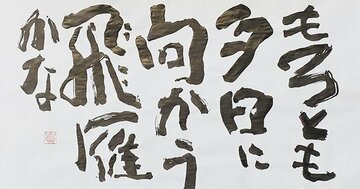 もつとも
夕日に
向かう
飛雁
かな